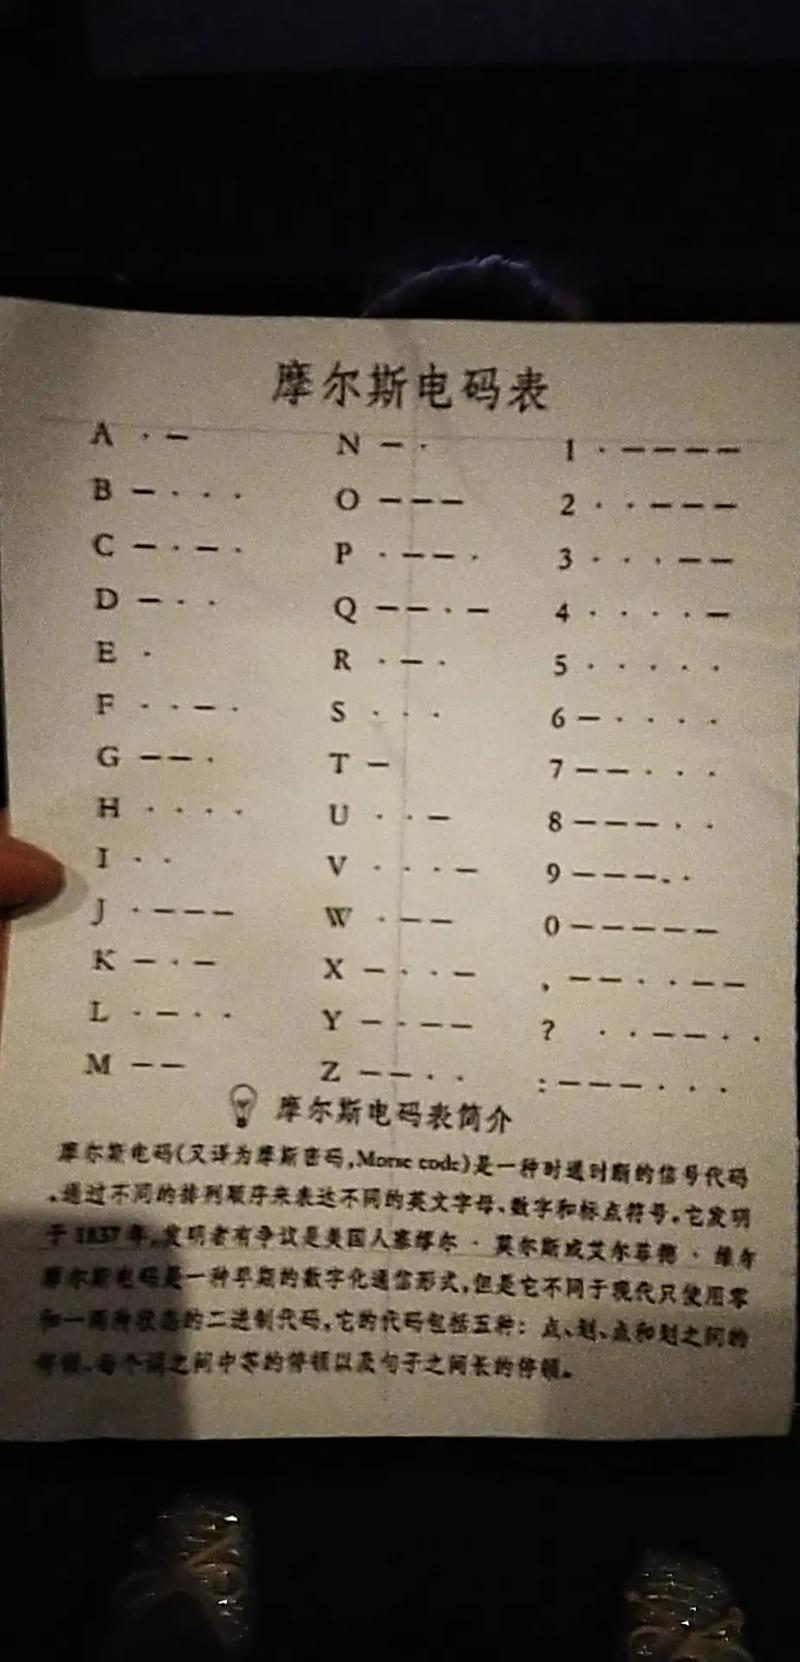 摩尔斯电码表
A · — N — · 1 · — — — —
B — · · · O — — — 2 · · — — —
C — · — · P · — — · 3 · · · — —
D — · · Q — — · — 4 · · · · —
E · R · — · 5 · · · · ·
F · · — · S · · · 6 — · · · ·
G — — · T — 7 — — · · ·
H · · · · U · · — 8 — — — · ·
I · · V · · · — 9 — — — · ·
J · — — — W · — — 0 — — — — —
K — · — X — · · — , — — · · — —
L · — · · Y — · — — ? · · — — · ·
M — — Z — — · · : — — — · · ·
摩尔斯电码表简介
摩尔斯电码(又译为摩斯密码,Morse code)是一种时通时断的信号代码
,通过不同的排列顺序来表达不同的英文字母、数字和标点符号。它发明
于 1837 年,发明者有争议是美国人塞缪尔 · 莫尔斯或艾尔菲德 · 维尔
摩尔斯电码是一种早期的数字化通信形式,但是它不同于现代只使用零
和一两种状态的二进制代码,它的代码包括五种: 点、划、点和划之间的
停顿、每个词之间中等的停顿以及句子之间长的停顿。